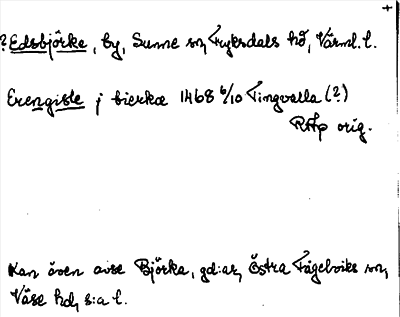 ?Edsbjörke, by, Sunne sn, Fryksdals hd, Värml. l.
Erengisle j bierka 1468 6/10 Tingvalla (?)
RAp orig.
Kan även avse Björka, gd:ar, Östra Fågelviks sn,
Väse hd, s:a l.